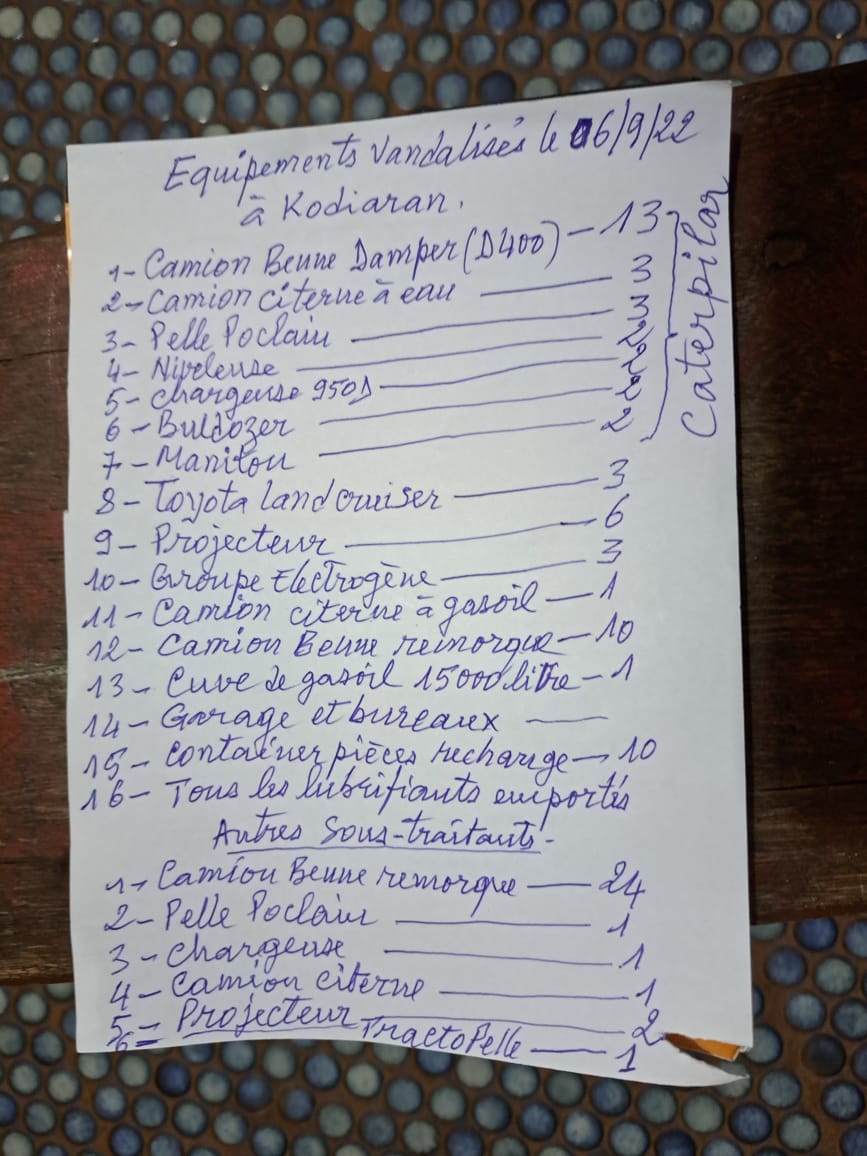 Equipements Vandalisés le 06/9/22
à Kodiaran.
1- Camion Benne Damper (D400) - 13
2- Camion citerne à eau — 3
3- Pelle Poclain — 3
4- Niveleuse — 2
5- chargeuse 950D — 2
6- Buldozer — 2
7- Manitou — 2
Caterpilar
8- Toyota landcruiser — 3
9- Projecteur — 6
10- Groupe Electrogène — 3
11- Camion citerne à gasoil — 1
12- Camion Benne remorque - 10
13- Cuve de gasoil 15000 litre - 1
14- Garage et bureaux —
15- Container pièces rechange — 10
16- Tous les lubrifiants emportés
Autres Sous-traitants-
1- Camion Benne remorque — 24
2- Pelle Poclain — 1
3- chargeuse — 1
4- Camion citerne — 1
5- Projecteur — 2
6= TractoPelle — 1